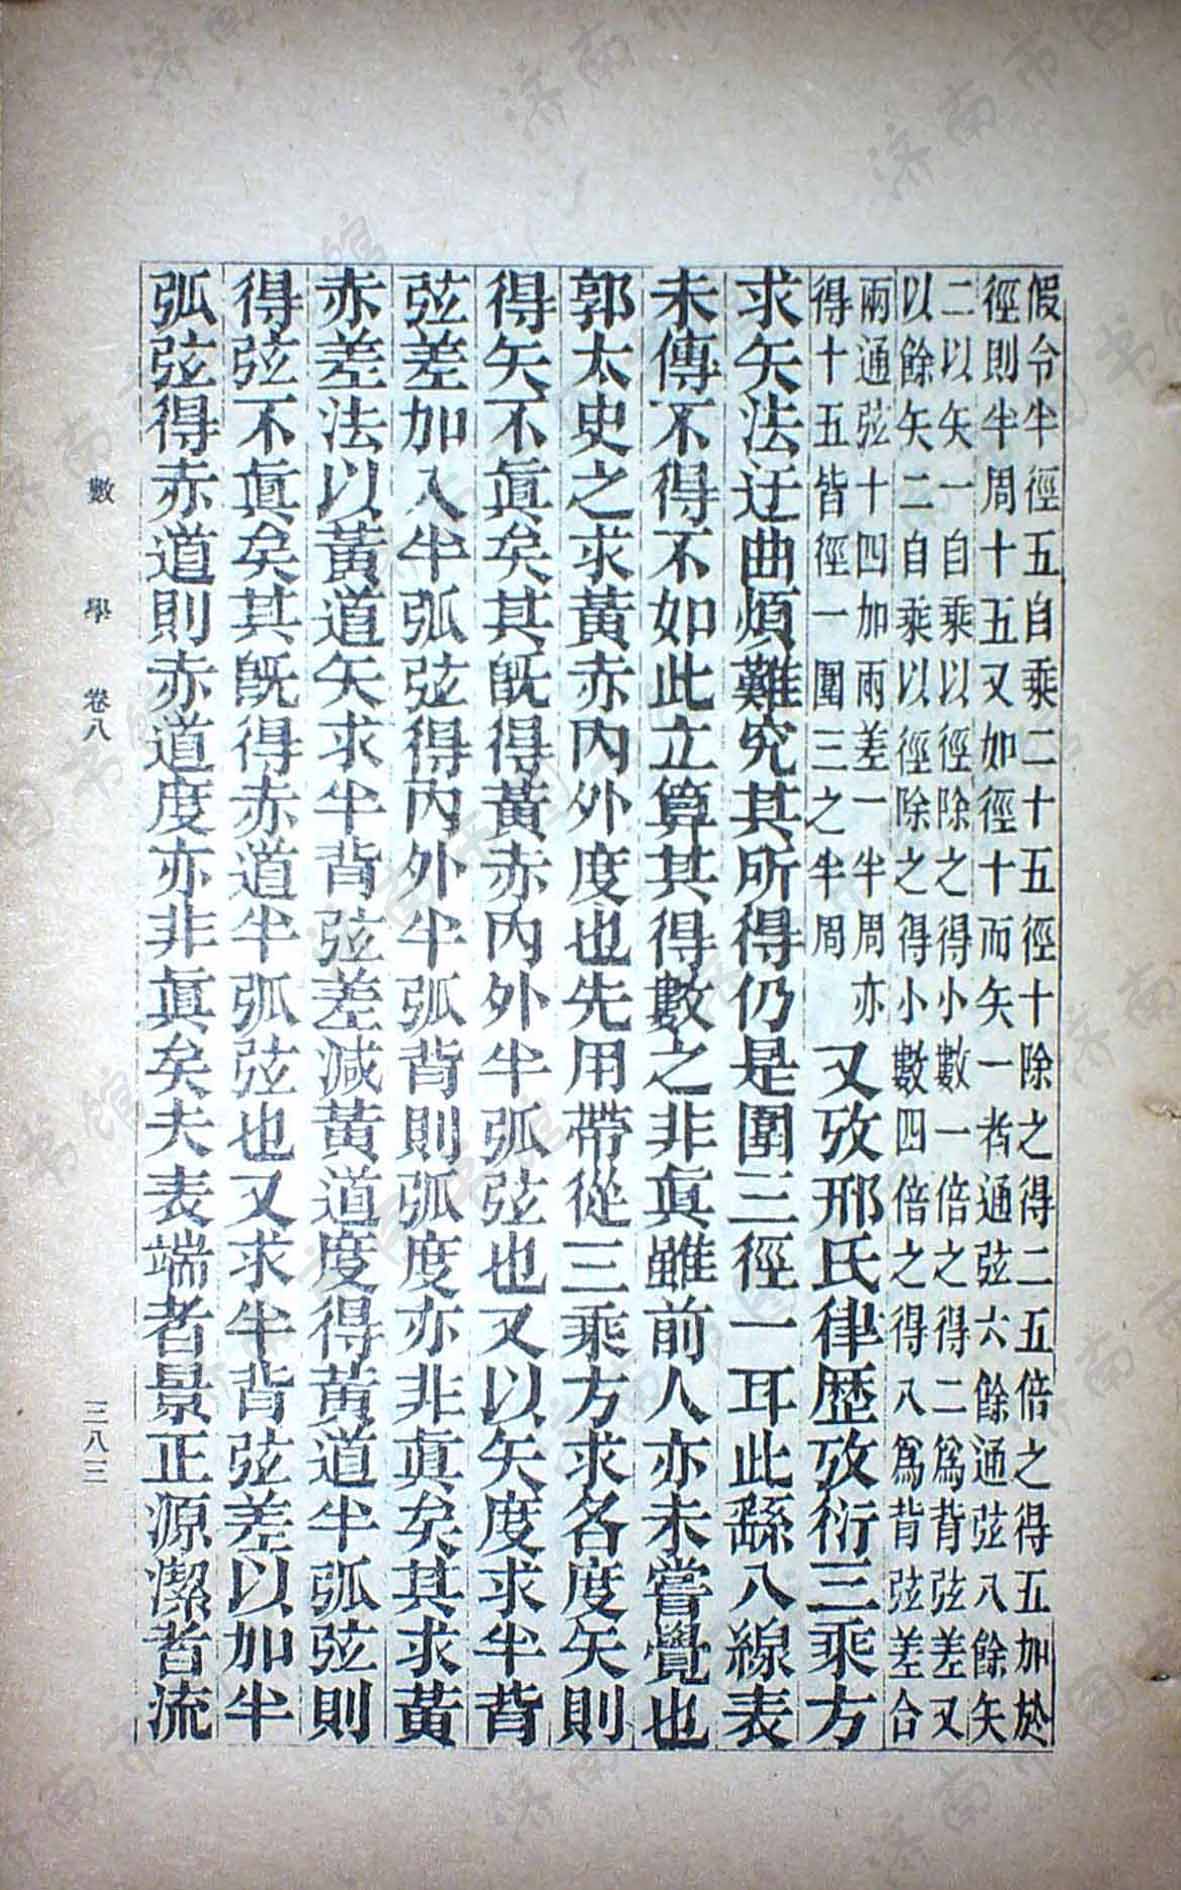 假令半徑五自乘二十五徑十除之得二五倍之得五加於
徑則半周十五又如徑十而矢一者通弦六餘通弦八餘矢
二以矢一自乘以徑除之得小數一倍之得二爲背弦差又
以餘矢二自乘以徑除之得小數四倍之得八爲背弦差合
兩通弦十四加兩差一半周亦
得十五皆徑一圍三之半周
又攷邢氏律歷攷衍三乘方
求矢法迂曲煩難究其所得仍是圍三徑一耳此繇八線表
未傳不得不如此立算其得數之非眞雖前人亦未嘗覺也
郭太史之求黃赤內外度也先用帶從三乘方求各度矢則
得矢不眞矣其旣得黃赤內外半弧弦也又以矢度求半背
弦差加入半弧弦得內外半弧背則弧度亦非眞矣其求黃
赤差法以黃道矢求半背弦差減黃道度得黃道半弧弦則
得弦不眞矣其旣得赤道半弧弦也又求半背弦差以加半
弧弦得赤道則赤道度亦非眞矣夫表端者景正源潔者流
數學 卷八
三八三